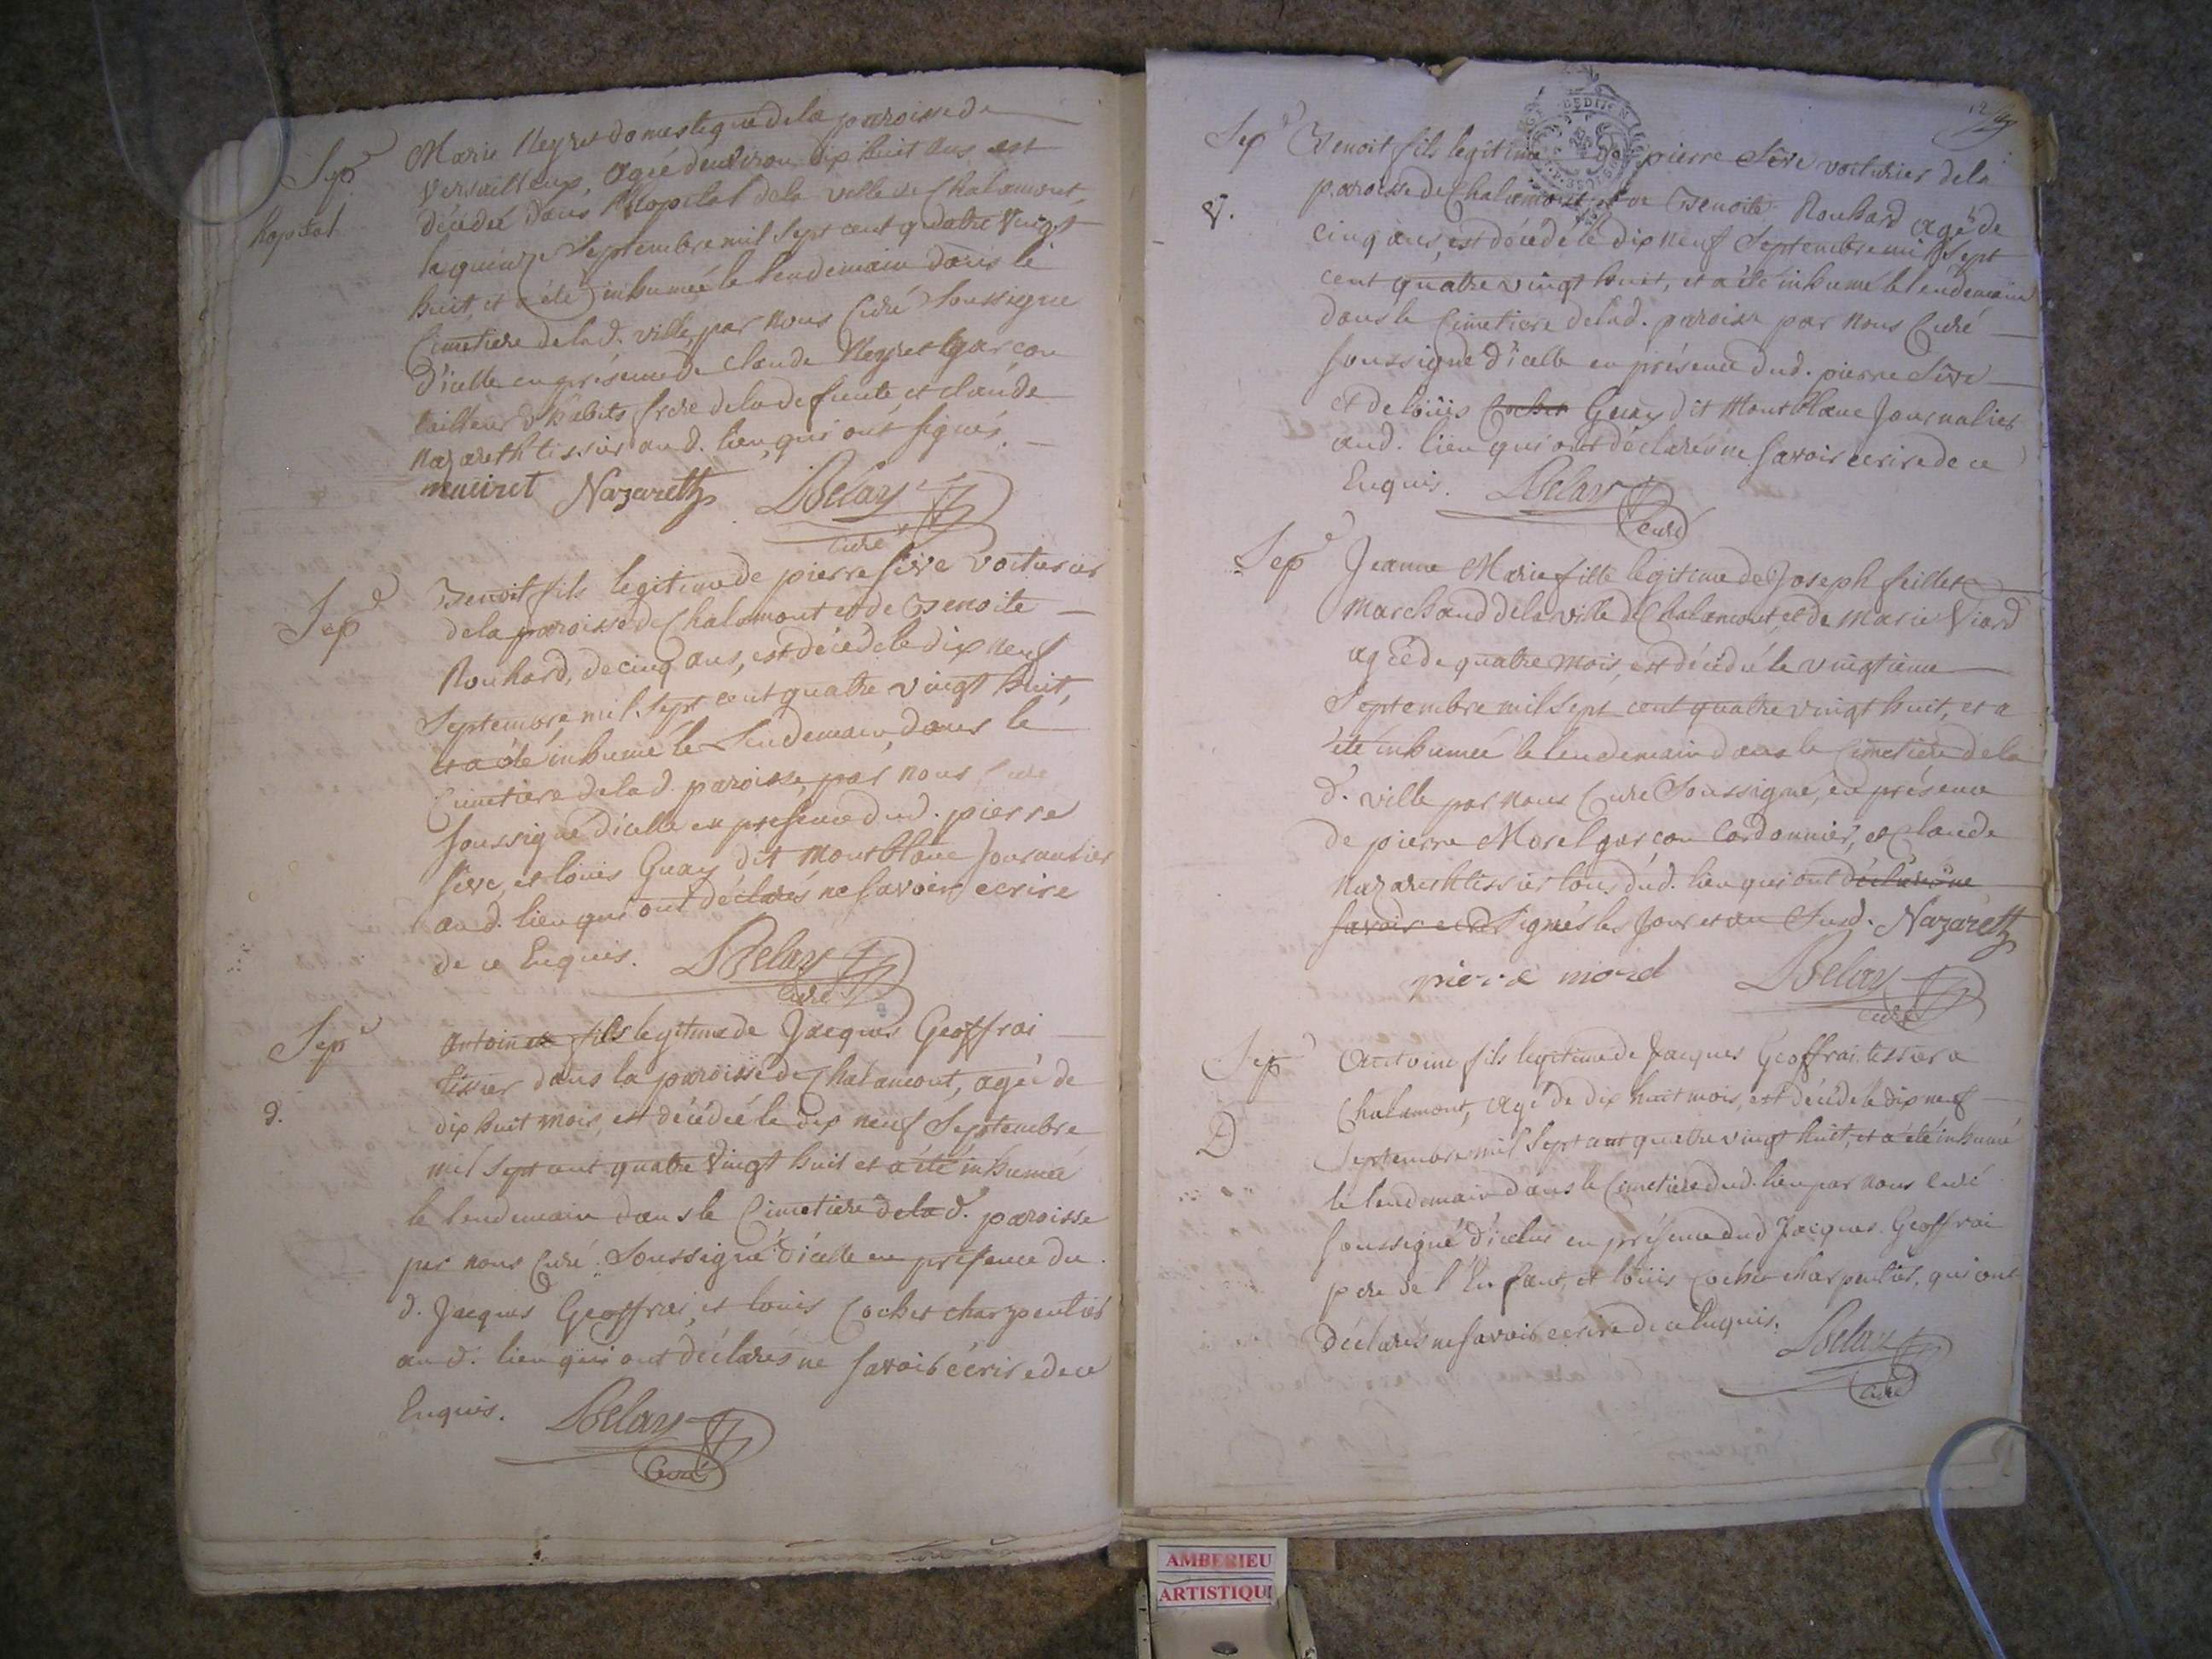 Sep.e
hopital
Marie Neyret domestique de la paroisse de
Versailleux, agée d'environ dix huit ans est
décédée dans l'hopital de la ville de Chalamont,
le quinze Septembre mil sept cent quatre vingt
huit, et a été inhumée le lendemain dans le
Cimetiere de la d. ville, par nous Curé soussigné
d'icelle en présence de claude Neyret garcon
tailleur d'habits frere de la defunte, et claude
nazareth tissier au d. lieu, qui ont signés.
neuiret Nazareth LBelay
curé
Sep.e
Benoit fils legitime de pierre sève voiturier
de la paroisse de Chalamont et de Benoite
Rouhard, de cinq ans, est décédé le dix neuf
Septembre, mil sept cent quatre vingt huit,
et a été inhumé le lendemain, dans le
Cimetiere de la d. paroisse, par nous Curé
soussigné d'icelle en presence dud. pierre
sève, et louis Guay dit montblanc Journalier
au d. lieu qui ont déclarés ne savoir ecrire
de ce Enquis. LBelay
Curé
Sep.e
d.
antoine fils legitime de Jacques Geoffrai
tissier dans la paroisse de Chalamont, agée de
dix huit mois, est décédée le dix neuf Septembre
mil sept cent quatre vingt huit et a été inhumée
le lendemain dans le Cimetiere de la d. paroisse
par nous Curé Soussigné d'icelle en présence du
d. Jacques Geoffrai, et louis Cochet charpentier
au d. lieu qui ont déclarés ne savoir écrire de ce
Enquis. LBelay
Curé
Sep.e
V.
Benoit fils legitime de pierre Sève voiturier de la
paroisse de Chalamont et de Benoite Rouhard agé de
cinq ans, est décédé le dix neuf Septembre mil sept
cent quatre vingt huit, et a été inhumé le lendemain
dans le Cimetiere de la d. paroisse par nous Curé
soussigné d'icelle en présence dud. pierre Sève
et de louis Cochet Guay dit Montblanc Journalier
aud. lieu qui ont déclarés ne savoir ecrire de ce
Enquis. LBelay
Curé
Sep.e
Jeanne Marie fille legitime de Joseph feillet
marchand de la ville de Chalamont, et de marie Viard
agée de quatre mois, est décédée le vingtieme
Septembre mil sept cent quatre vingt huit, et a
été inhumée le lendemain dans le Cimetiere de la
d. ville par nous Curé Soussigné, en présence
de pierre Morel garcon Cordonnier, et claude
nazareth tissier tous dud. lieu qui ont déclarés ne
savoir ecr signés les Jour et an Susd. Nazareth
pierre morel LBelay
Curé
Sep.e
D
Antoine fils legitime de Jacques Geoffrai tissier a
Chalamont, agé de dix huit mois, est décédé le dix neuf
Septembre mil sept cent quatre vingt huit, et a été inhumé
le lendemain dans le Cimetiere dud. lieu par nous Curé
soussigné d'icelui en présence dud Jacques Geoffrai
pere de l'Enfant, et louis Cochet charpentier, qui ont
déclarés ne savoir ecrire de ce Enquis. LBelay
Curé
AMBERIEU
ARTISTIQU